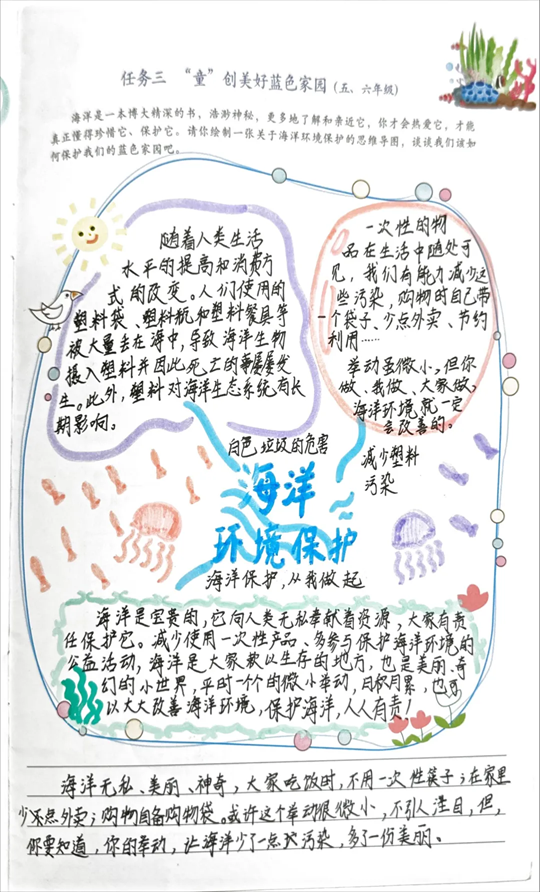 任务三 “童”创美好蓝色家园（五、六年级）
海洋是一本博大精深的书，浩渺神秘，更多地了解和亲近它，你才会热爱它，才能
真正懂得珍惜它、保护它。请你绘制一张关于海洋环境保护的思维导图，谈谈我们该如
何保护我们的蓝色家园吧。
随着人类生活
水平的提高和消费方
式的改变。人们使用的
塑料袋、塑料瓶和塑料餐具等
被大量丢在海中，导致海洋生物
摄入塑料并因此死亡的事屡屡发
生。此外，塑料对海洋生态系统有长
期影响。
一次性的物
品在生活中随处可
见，我们有能力减少这
些污染，购物时自己带
一个袋子、少点外卖、节约
利用……
举动虽微小，但你
做、我做、大家做，
海洋环境就一定
会改善的。
白色垃圾的危害
减少塑料
污染
海洋
环境保护
海洋保护，从我做起
海洋是宝贵的，它向人类无私奉献着资源，大家有责
任保护它。减少使用一次性产品、多参与保护海洋环境的
公益活动，海洋是大家赖以生存的地方，也是美丽、奇
幻的小世界，平时一个个的微小举动，日积月累，也可
以大大改善海洋环境，保护海洋，人人有责！
海洋无私、美丽、神奇，大家吃饭时，不用一次性筷子；在家里
少点外卖；购物自备购物袋。或许这个举动很微小，不引人注目，但，
你要知道，你的举动，让海洋少了一点污染，多了一份美丽。